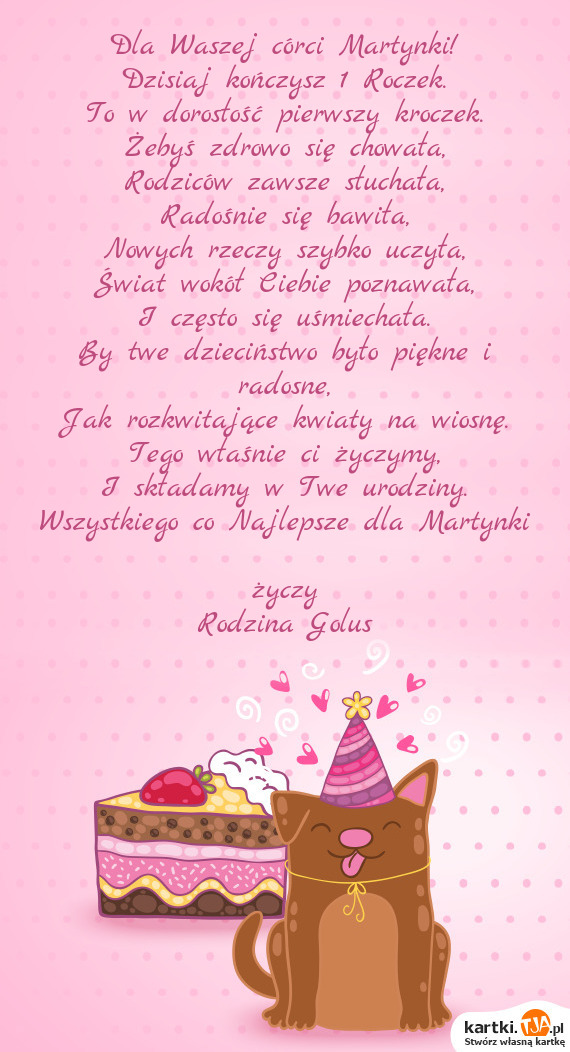 Dla Waszej córci Martynki!
Dzisiaj kończysz 1 Roczek.
To w dorosłość pierwszy kroczek.
Żebyś zdrowo się chowała,
Rodziców zawsze słuchała,
Radośnie się bawiła,
Nowych rzeczy szybko uczyła,
Świat wokół Ciebie poznawała,
I często się uśmiechała.
By twe dzieciństwo było piękne i
radosne,
Jak rozkwitające kwiaty na wiosnę.
Tego właśnie ci życzymy,
I składamy w Twe urodziny.
Wszystkiego co Najlepsze dla Martynki
życzy
Rodzina Golus
kartki.TJA.pl
Stwórz własną kartkę